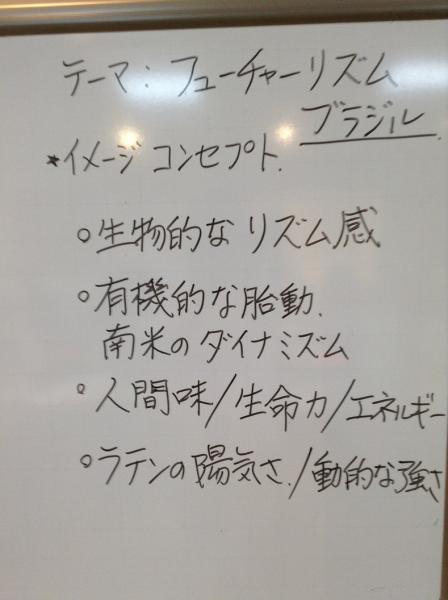 テーマ：フューチャーリズム
ブラジル
*イメージ コンセプト.
○生物的な リズム感
○有機的な胎動.
南米の ダイナミズム
○人間味/生命力/エネルギー
○ラテンの陽気さ./動的な強さ